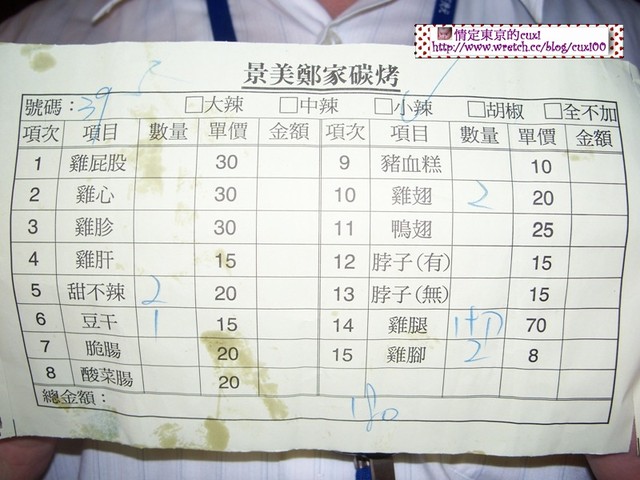 情定東京的cux!
http://www.wretch.cc/blog/cux100
景美鄭家碳烤
號碼：39 □大辣 □中辣 □小辣 □胡椒 □全不加
項次 項目 數量 單價 金額 項次 項目 數量 單價 金額
1 雞屁股 30 9 豬血糕 10
2 雞心 30 10 雞翅 2 20
3 雞胗 30 11 鴨翅 25
4 雞肝 15 12 脖子(有) 15
5 甜不辣 2 20 13 脖子(無) 15
6 豆干 1 15 14 雞腿 70
7 脆腸 20 15 雞腳 2 8
8 酸菜腸 20
總金額： 180